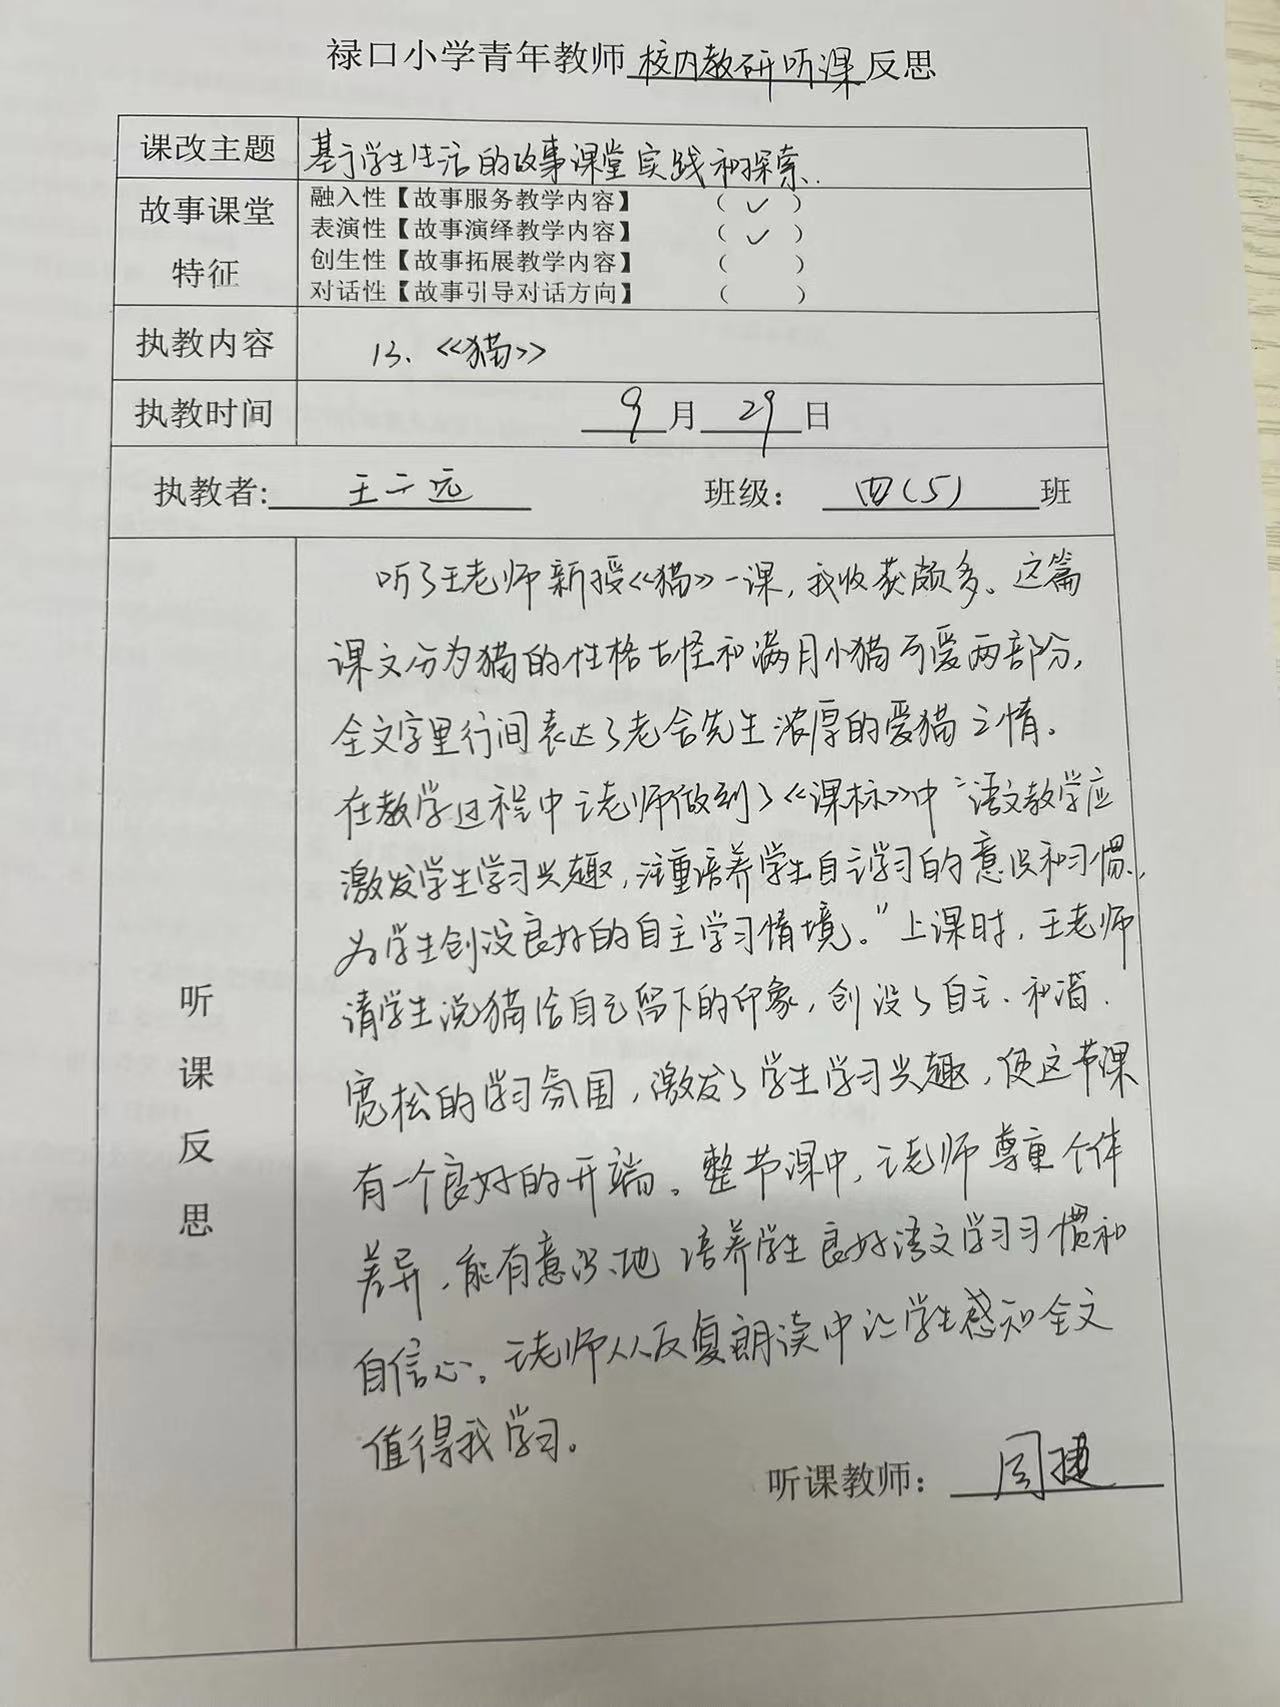 禄口小学青年教师校内教研听课反思
课改主题 基于学生生活的故事课堂实践和探索.
故事课堂特征
融入性【故事服务教学内容】 （ ✓ ）
表演性【故事演绎教学内容】 （ ✓ ）
创生性【故事拓展教学内容】 （ ）
对话性【故事引导对话方向】 （ ）
执教内容 13、《猫》
执教时间 9月29日
执教者: 王 远 班级： 四(5) 班
听课反思
听了王老师新授《猫》一课，我收获颇多。这篇
课文分为猫的性格古怪和满月小猫可爱两部分，
全文字里行间表达了老舍先生浓厚的爱猫之情。
在教学过程中王老师做到了《课标》中“语文教学应
激发学生学习兴趣，注重培养学生自主学习的意识和习惯，
为学生创设良好的自主学习情境。”上课时，王老师
请学生说猫给自己留下的印象，创设了自主、和谐、
宽松的学习氛围，激发了学生学习兴趣，使这节课
有一个良好的开端。整节课中，王老师尊重个体
差异，能有意识地培养学生良好语文学习习惯和
自信心。王老师从反复朗读中让学生感知全文
值得我学习。
听课教师： 周捷